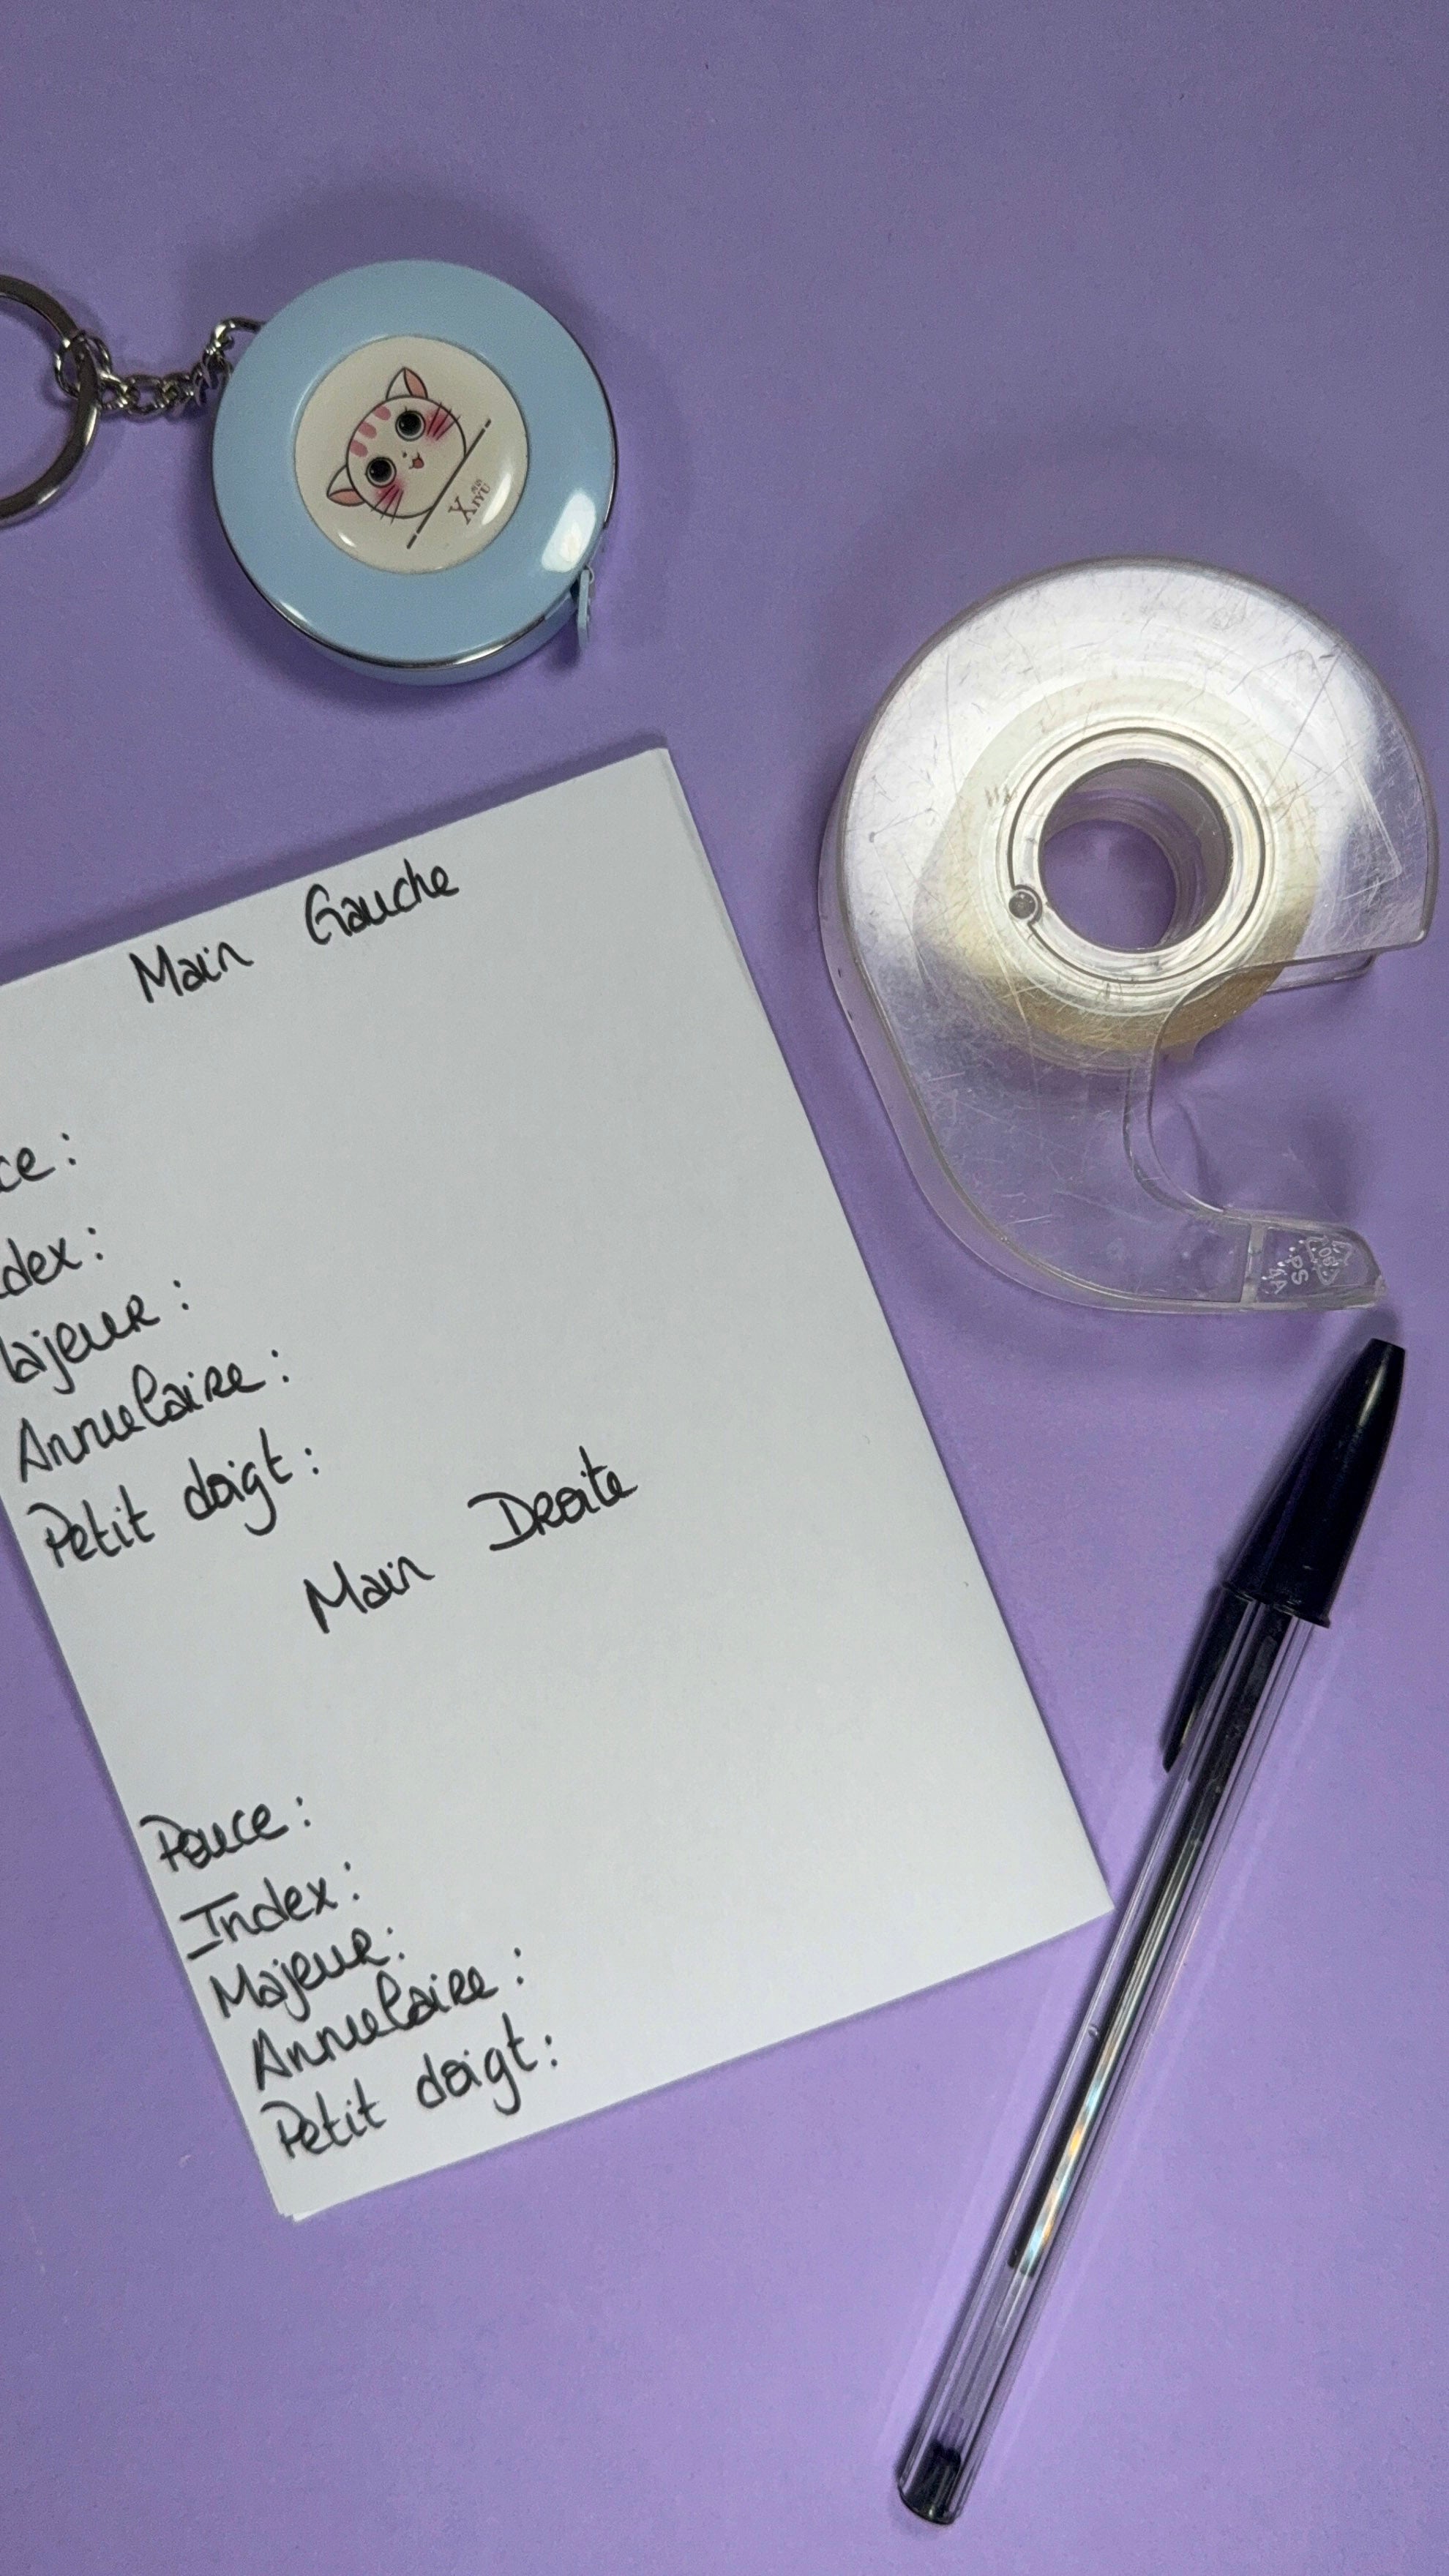 XIYU
Main Gauche
ce :
dex :
ajeur :
Annulaire :
Petit doigt :
Main Droite
Pouce :
Index :
Majeur :
Annulaire :
Petit doigt :
06
PS